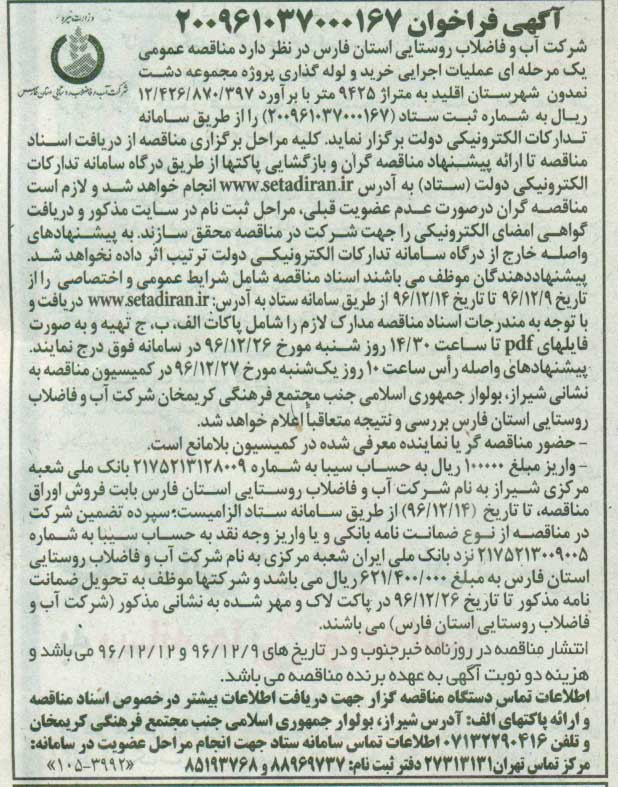 آگهی فراخوان ۲۰۰۹۶۱۰۳۷۰۰۰۱۶۷
وزارت نیرو
شرکت آب و فاضلاب روستایی استان فارس
شرکت آب و فاضلاب روستایی استان فارس در نظر دارد مناقصه عمومی
یک مرحله ای عملیات اجرایی خرید و لوله گذاری پروژه مجموعه دشت
نمدون شهرستان اقلید به متراژ ۹۴۲۵ متر با برآورد ۱۲/۴۲۶/۸۷۰/۳۹۷
ریال به شماره ثبت ستاد (۲۰۰۹۶۱۰۳۷۰۰۰۱۶۷) را از طریق سامانه
تدارکات الکترونیکی دولت برگزار نماید. کلیه مراحل برگزاری مناقصه از دریافت اسناد
مناقصه تا ارائه پیشنهاد مناقصه گران و بازگشایی پاکتها از طریق درگاه سامانه تدارکات
الکترونیکی دولت (ستاد) به آدرس www.setadiran.ir انجام خواهد شد و لازم است
مناقصه گران درصورت عدم عضویت قبلی، مراحل ثبت نام در سایت مذکور و دریافت
گواهی امضای الکترونیکی را جهت شرکت در مناقصه محقق سازند. به پیشنهادهای
واصله خارج از درگاه سامانه تدارکات الکترونیکی دولت ترتیب اثر داده نخواهد شد.
پیشنهاددهندگان موظف می باشند اسناد مناقصه شامل شرایط عمومی و اختصاصی را از
تاریخ ۹۶/۱۲/۹ تا تاریخ ۹۶/۱۲/۱۴ از طریق سامانه ستاد به آدرس: www.setadiran.ir دریافت و
با توجه به مندرجات اسناد مناقصه مدارک لازم را شامل پاکات الف، ب، ج تهیه و به صورت
فایلهای pdf تا ساعت ۱۴/۳۰ روز شنبه مورخ ۹۶/۱۲/۲۶ در سامانه فوق درج نمایند.
پیشنهادهای واصله رأس ساعت ۱۰ روز یک‌شنبه مورخ ۹۶/۱۲/۲۷ در کمیسیون مناقصه به
نشانی شیراز، بولوار جمهوری اسلامی جنب مجتمع فرهنگی کریمخان شرکت آب و فاضلاب
روستایی استان فارس بررسی و نتیجه متعاقباً اعلام خواهد شد.
- حضور مناقصه گر یا نماینده معرفی شده در کمیسیون بلامانع است.
- واریز مبلغ ۱۰۰۰۰۰ ریال به حساب سیبا به شماره ۲۱۷۵۲۱۳۱۲۸۰۰۹ بانک ملی شعبه
مرکزی شیراز به نام شرکت آب و فاضلاب روستایی استان فارس بابت فروش اوراق
مناقصه، تا تاریخ (۹۶/۱۲/۱۴) از طریق سامانه ستاد الزامیست؛ سپرده تضمین شرکت
در مناقصه از نوع ضمانت نامه بانکی و یا واریز وجه نقد به حساب سیبا به شماره
۲۱۷۵۲۱۳۰۰۹۰۰۵ نزد بانک ملی ایران شعبه مرکزی به نام شرکت آب و فاضلاب روستایی
استان فارس به مبلغ ۶۲۱/۴۰۰/۰۰۰ ریال می باشد و شرکتها موظف به تحویل ضمانت
نامه مذکور تا تاریخ ۹۶/۱۲/۲۶ در پاکت لاک و مهر شده به نشانی مذکور (شرکت آب و
فاضلاب روستایی استان فارس) می باشند.
انتشار مناقصه در روزنامه خبرجنوب و در تاریخ های ۹۶/۱۲/۹ و ۹۶/۱۲/۱۲ می باشد و
هزینه دو نوبت آگهی به عهده برنده مناقصه می باشد.
اطلاعات تماس دستگاه مناقصه گزار جهت دریافت اطلاعات بیشتر درخصوص اسناد مناقصه
و ارائه پاکتهای الف: آدرس شیراز، بولوار جمهوری اسلامی جنب مجتمع فرهنگی کریمخان
و تلفن ۰۷۱۳۲۲۹۰۴۱۶ اطلاعات تماس سامانه ستاد جهت انجام مراحل عضویت در سامانه:
مرکز تماس تهران ۲۷۳۱۳۱۳۱ دفتر ثبت نام: ۸۸۹۶۹۷۳۷ و ۸۵۱۹۳۷۶۸
«۱۰۵-۳۹۹۲»